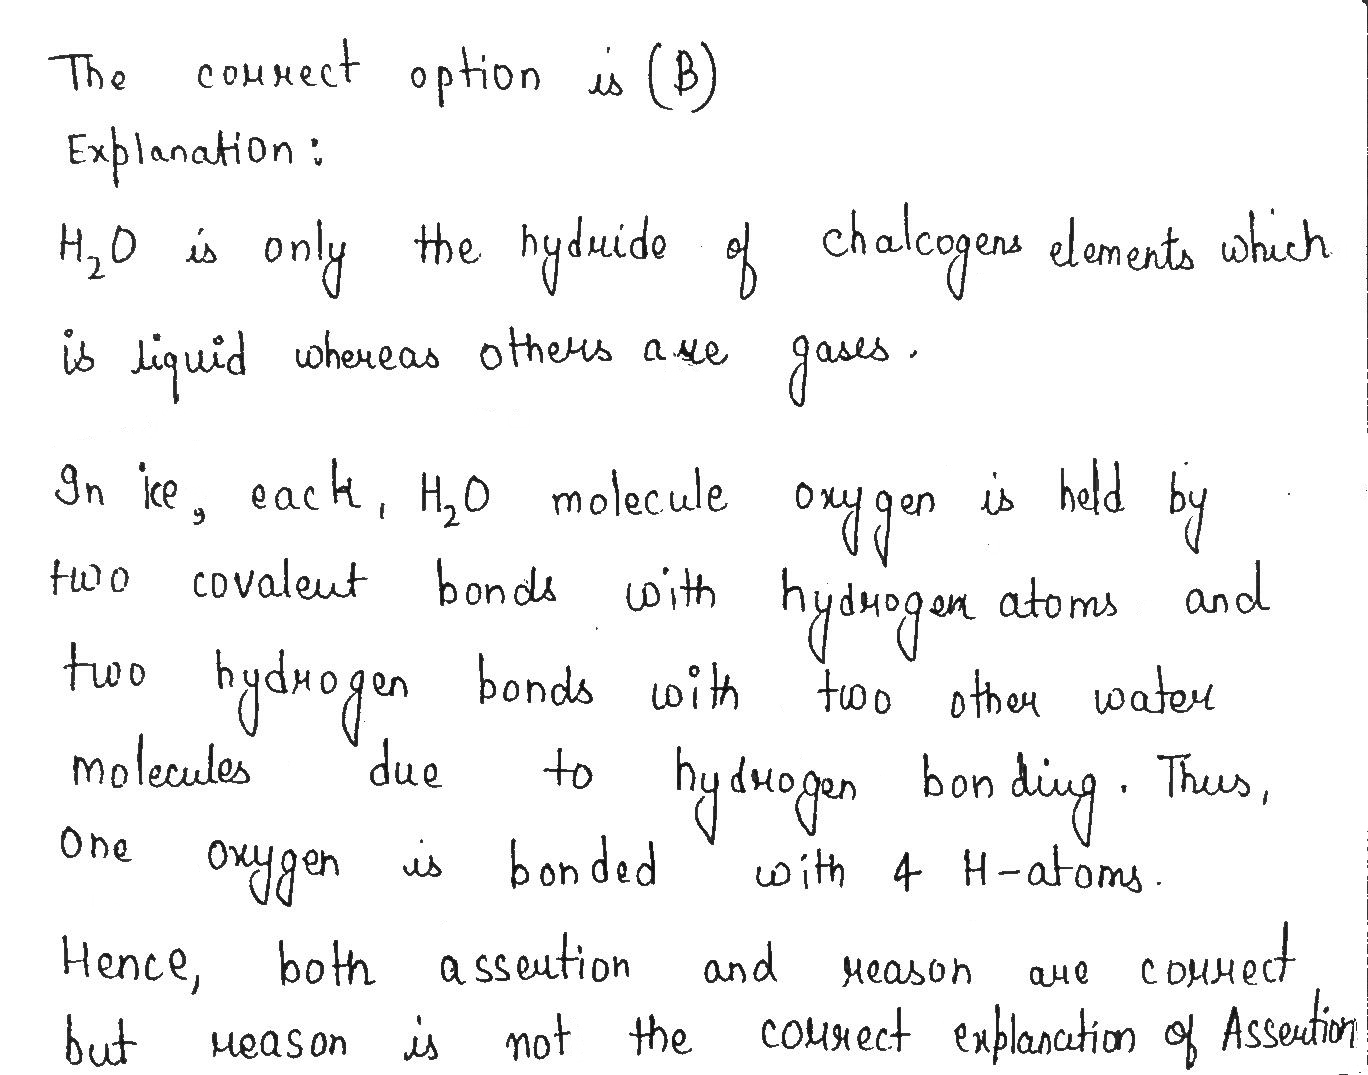 The correct option is (B)
Explanation:
H₂O is only the hydride of chalcogens elements which
is liquid whereas others are gases.
In ice, each, H₂O molecule oxygen is held by
two covalent bonds with hydrogen atoms and
two hydrogen bonds with two other water
molecules due to hydrogen bonding. Thus,
one oxygen is bonded with 4 H-atoms.
Hence, both assertion and reason are correct
but reason is not the correct explanation of Assertion